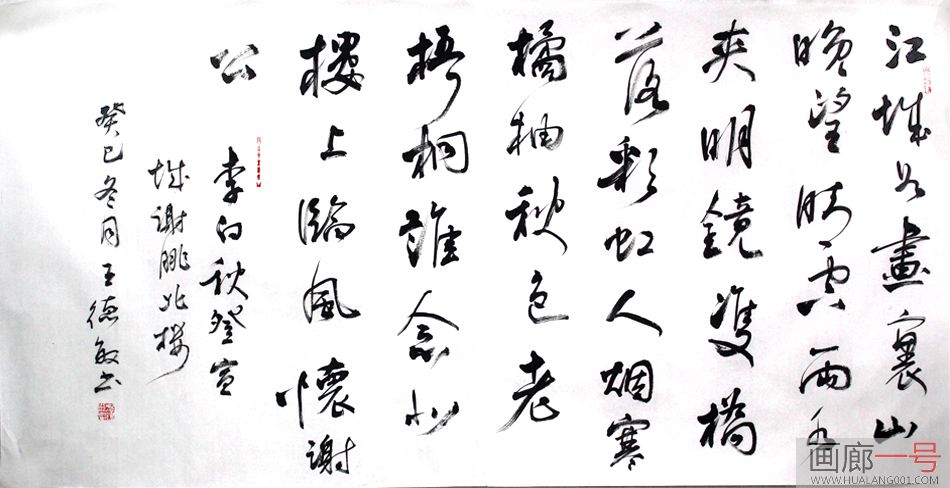 江城如畫裏山
晚望晴空兩水
夾明鏡雙橋
落彩虹人烟寒
橘柚秋色老
梧桐誰念北
樓上臨風懷謝
公
李白秋登宣
城謝朓北楼
癸巳冬月王德敏书
画廊一号
WWW.HUALANG001.COM